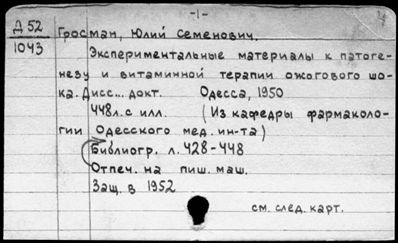 -1-
Д 52
1043
Гросман, Юлий Семенович.
Экспериментальные материалы к патоге-
незу и витаминной терапии ожогового шо-
ка. Дисс... докт. Одесса, 1950
448л. с илл. (Из кафедры фармаколо-
гии Одесского мед. ин-та)
Библиогр. л. 428-448
Отпеч. на пиш. маш.
Защ. в 1952
см. след. карт.